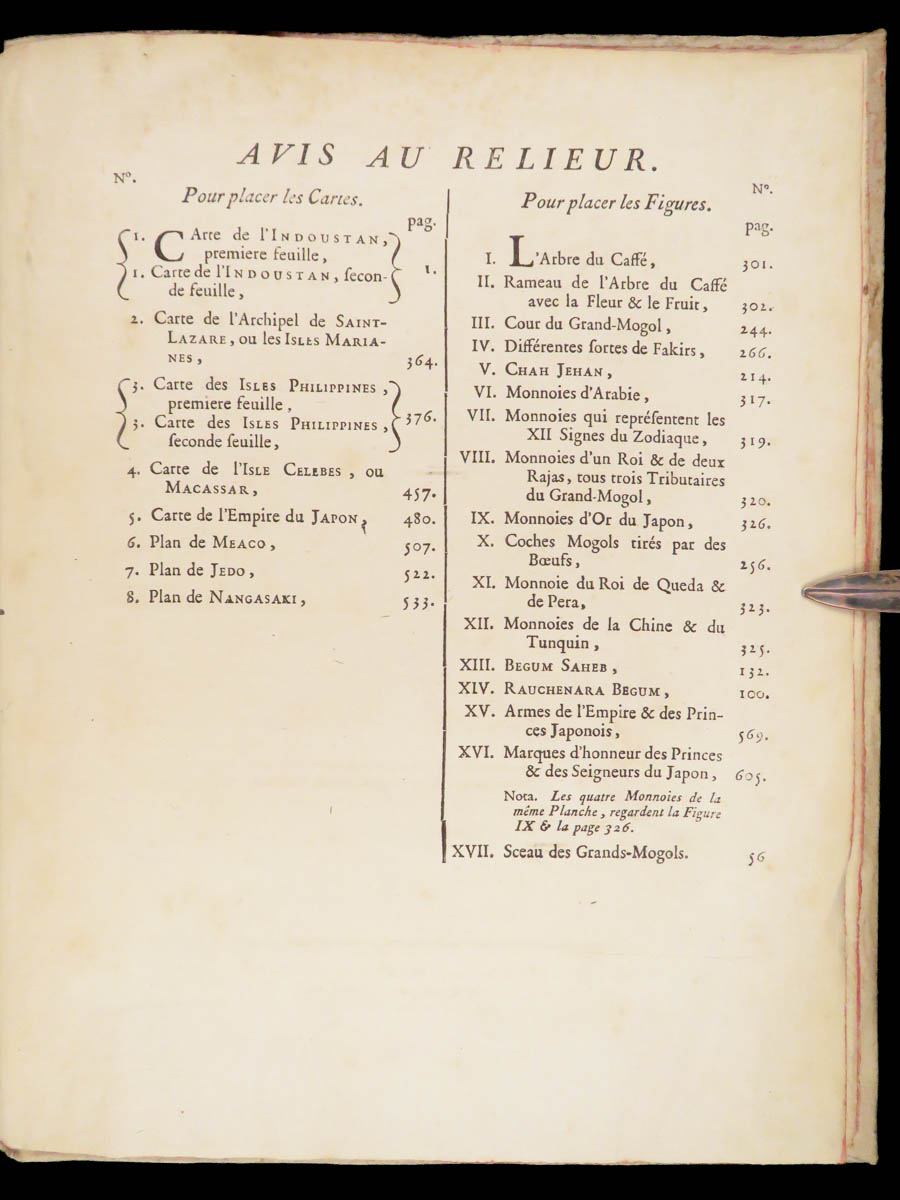 AVIS AU RELIEUR.
Nº.
Pour placer les Cartes.
pag.
1. CArte de l'INDOUSTAN,
premiere feuille,
1. Carte de l'INDOUSTAN, ſecon-
de feuille, 1.
2. Carte de l'Archipel de SAINT-
LAZARE, ou les ISLES MARIA-
NES, 364.
3. Carte des ISLES PHILIPPINES,
premiere feuille,
3. Carte des ISLES PHILIPPINES, 376.
ſeconde feuille,
4. Carte de l'ISLE CELEBES, ou
MACASSAR, 457.
5. Carte de l'Empire du JAPON, 480.
6. Plan de MEACO, 507.
7. Plan de JEDO, 522.
8. Plan de NANGASAKI, 533.
Nº.
Pour placer les Figures.
pag.
I. L'Arbre du Caffé, 301.
II. Rameau de l'Arbre du Caffé
avec la Fleur & le Fruit, 302.
III. Cour du Grand-Mogol, 244.
IV. Différentes ſortes de Fakirs, 266.
V. CHAH JEHAN, 214.
VI. Monnoies d'Arabie, 317.
VII. Monnoies qui repréſentent les
XII Signes du Zodiaque, 319.
VIII. Monnoies d'un Roi & de deux
Rajas, tous trois Tributaires
du Grand-Mogol, 320.
IX. Monnoies d'Or du Japon, 326.
X. Coches Mogols tirés par des
Bœufs, 256.
XI. Monnoie du Roi de Queda &
de Pera, 323.
XII. Monnoies de la Chine & du
Tunquin, 325.
XIII. BEGUM SAHEB, 132.
XIV. RAUCHENARA BEGUM, 100.
XV. Armes de l'Empire & des Prin-
ces Japonois, 569.
XVI. Marques d'honneur des Princes
& des Seigneurs du Japon, 605.
Nota. Les quatre Monnoies de la
même Planche, regardent la Figure
IX & la page 326.
XVII. Sceau des Grands-Mogols. 56